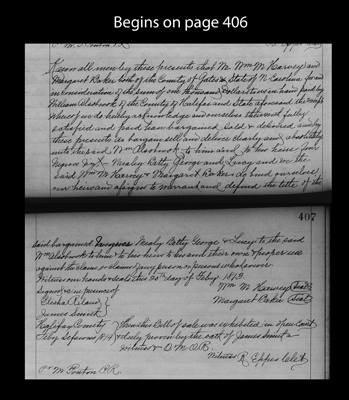 Begins on page 406
Know all men by these presents that We Wm M Harvey and
Margaret Baker both of the County of Gates & State of N Carolina for and
in consideration of the sum of one thousand dollars to us in hand paid by
William Alsobrook of the County of Halifax and State aforesaid the receipt
whereof we do hereby acknowledge and ourselves thereof fully
satisfied and paid have bargained sold & delivered and by
these presents do bargain sell and deliver clearly and absolutely
unto the said Wm Alsobrook to him and to his heirs four
Negroes Mealy Betty George and Lucy and we the
said Wm M Harvey & Margaret Baker do bind ourselves
our heirs and assigns to warrant and defend the title of the
407
said bargained Negroes Mealy Betty George & Lucy to the said
Wm Alsobrook to him & to his heirs to his and their own & proper use
against the claim or claims of any person or persons whatsoever
Witness our hands & seals this 30th day of 1813
Signed in presence of Wm M Harvey (Seal)
Elisha
James Smith Margaret Baker (Seal)
Halifax County Then this Bill of sale was exhibited in open Court
Feby Sessions 1814 & duly proven by the oath of James Smith a
witness & O. M. O. R.
Witness R Eppes Clk
M Pouton P.R.